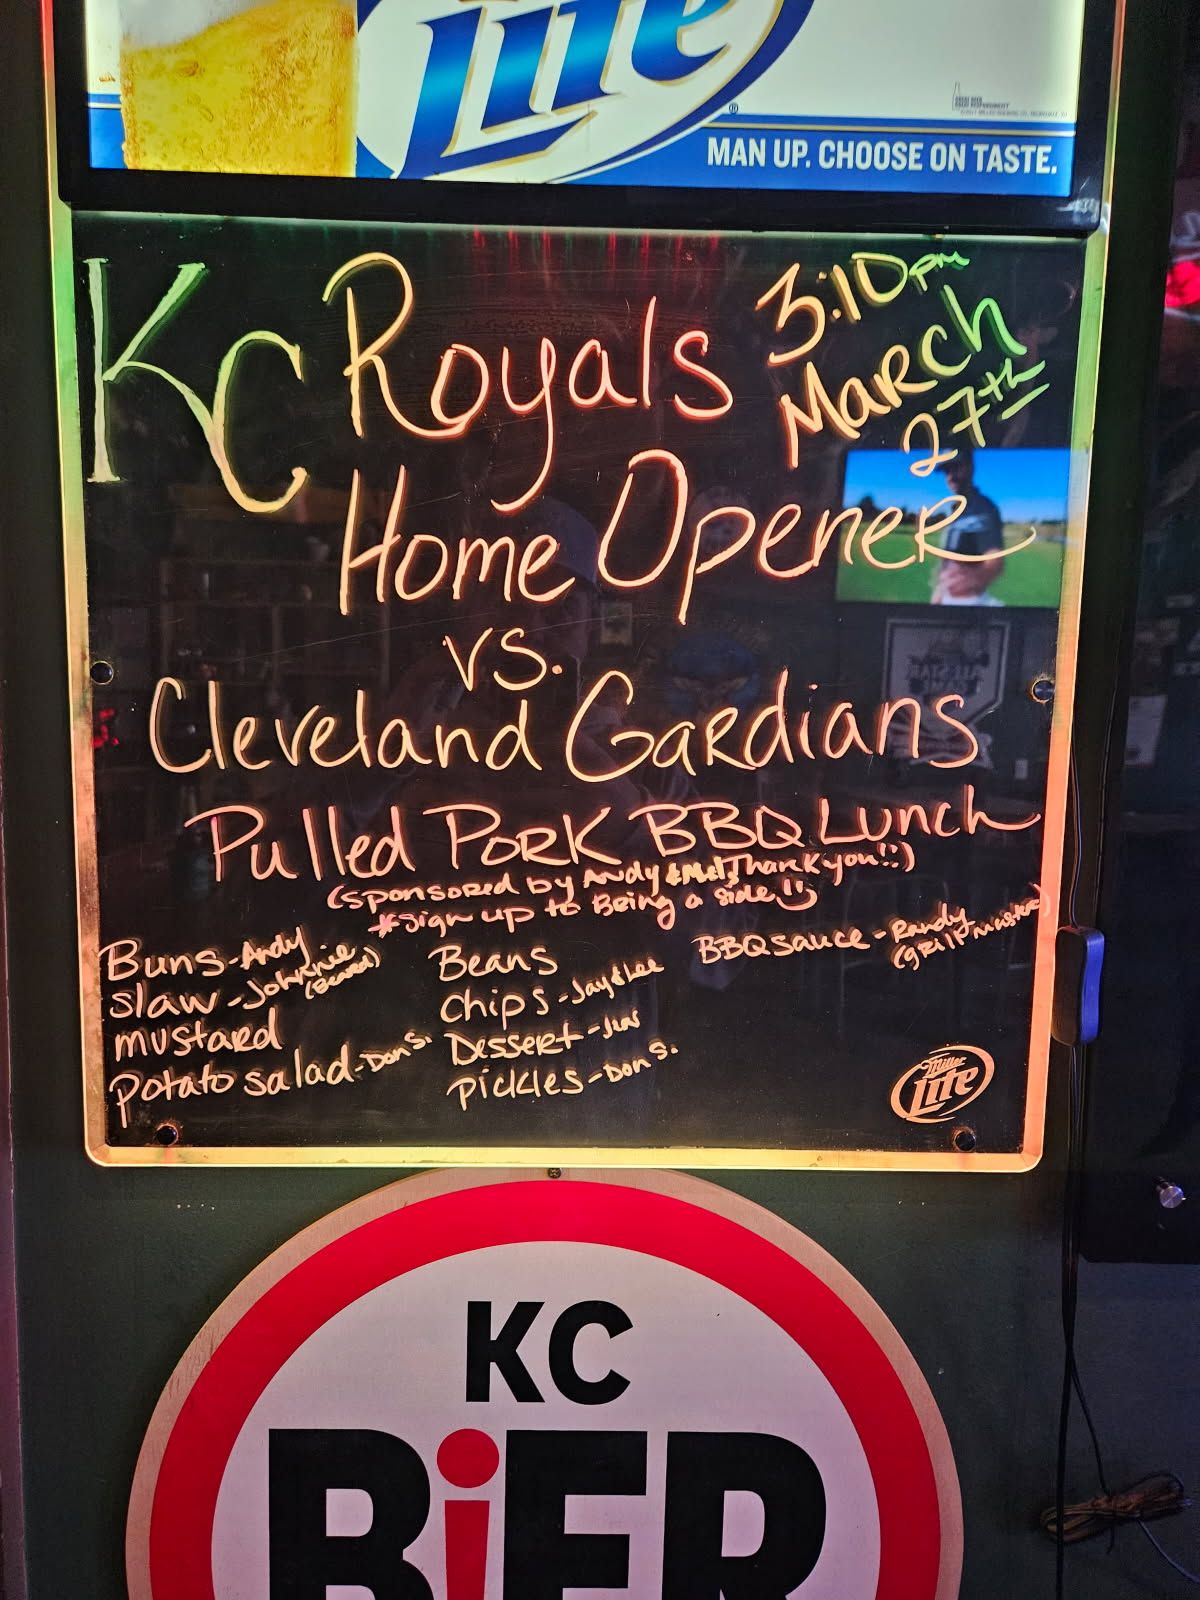 Lite
MAN UP. CHOOSE ON TASTE.
KC Royals
3:10pm
March
27th
Home Opener
vs.
Cleveland Gardians
Pulled Pork BBQ Lunch
(sponsored by Andy & Mel, Thank you!!)
*sign up to Being a side!!
Buns-Andy
slaw-Johnnie
(Beard)
mustard
potato salad-Don S.
Beans
chips-Jay & Lee
Dessert-Jen
pickles-Don S.
BBQ sauce-Randy
(grill master)
Miller
Lite
KC
BiER